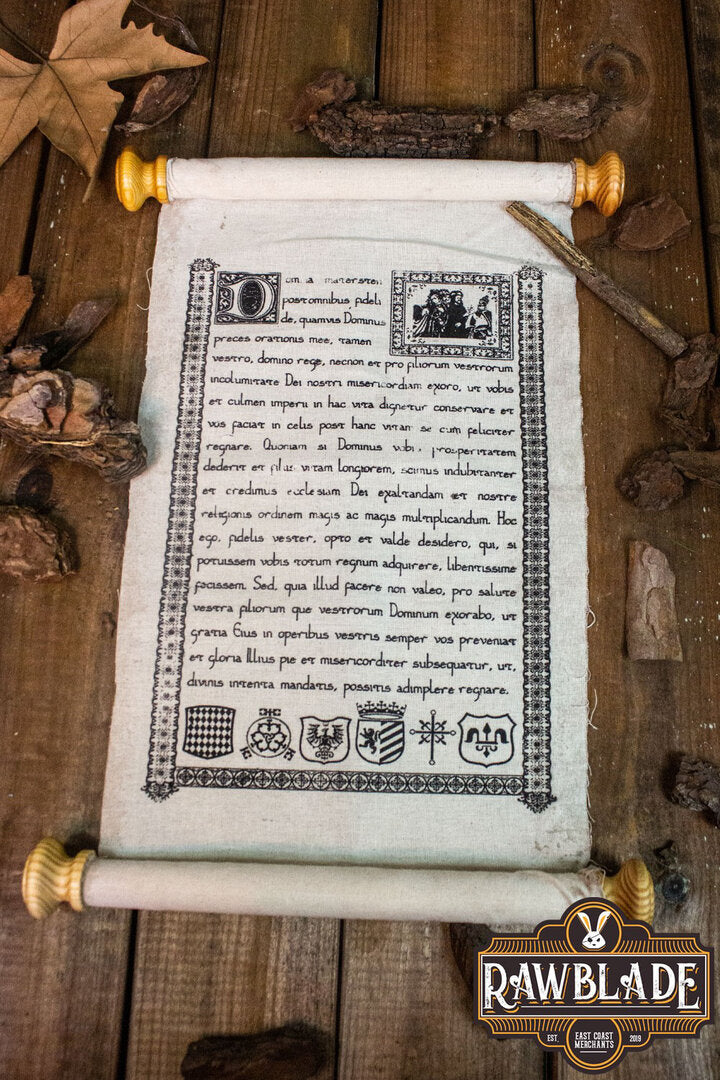 D
postomnibus fideli
de, quamvis Dominus
preces orationis mee, tamen
vestro, domino rege, necnon et pro filiorum vestrorum
incolumitate Dei nostri misericordiam exoro, ut vobis
et culmen imperii in hac vita dignetur conservare et
vos faciat in celis post hanc vitam se cum feliciter
regnare. Quoniam si Dominus vobis prosperitatem
dederit et filiis vitam longiorem, scimus indubitanter
et credimus ecclesiam Dei exaltandam et nostre
religionis ordinem magis ac magis multiplicandum. Hoc
ego, fidelis vester, opto et valde desidero, qui, si
potuissem vobis totum regnum adquirere, libentissime
fecissem. Sed, quia illud facere non valeo, pro salute
vestra filiorum que vestrorum Dominum exorabo, ut
gratia Eius in operibus vestris semper vos preveniat
et gloria Illius pie et misericorditer subsequatur, ut,
divinis intenta mandatis, possitis adimplere regnare.
RAWBLADE
EST. EAST COAST MERCHANTS 2019